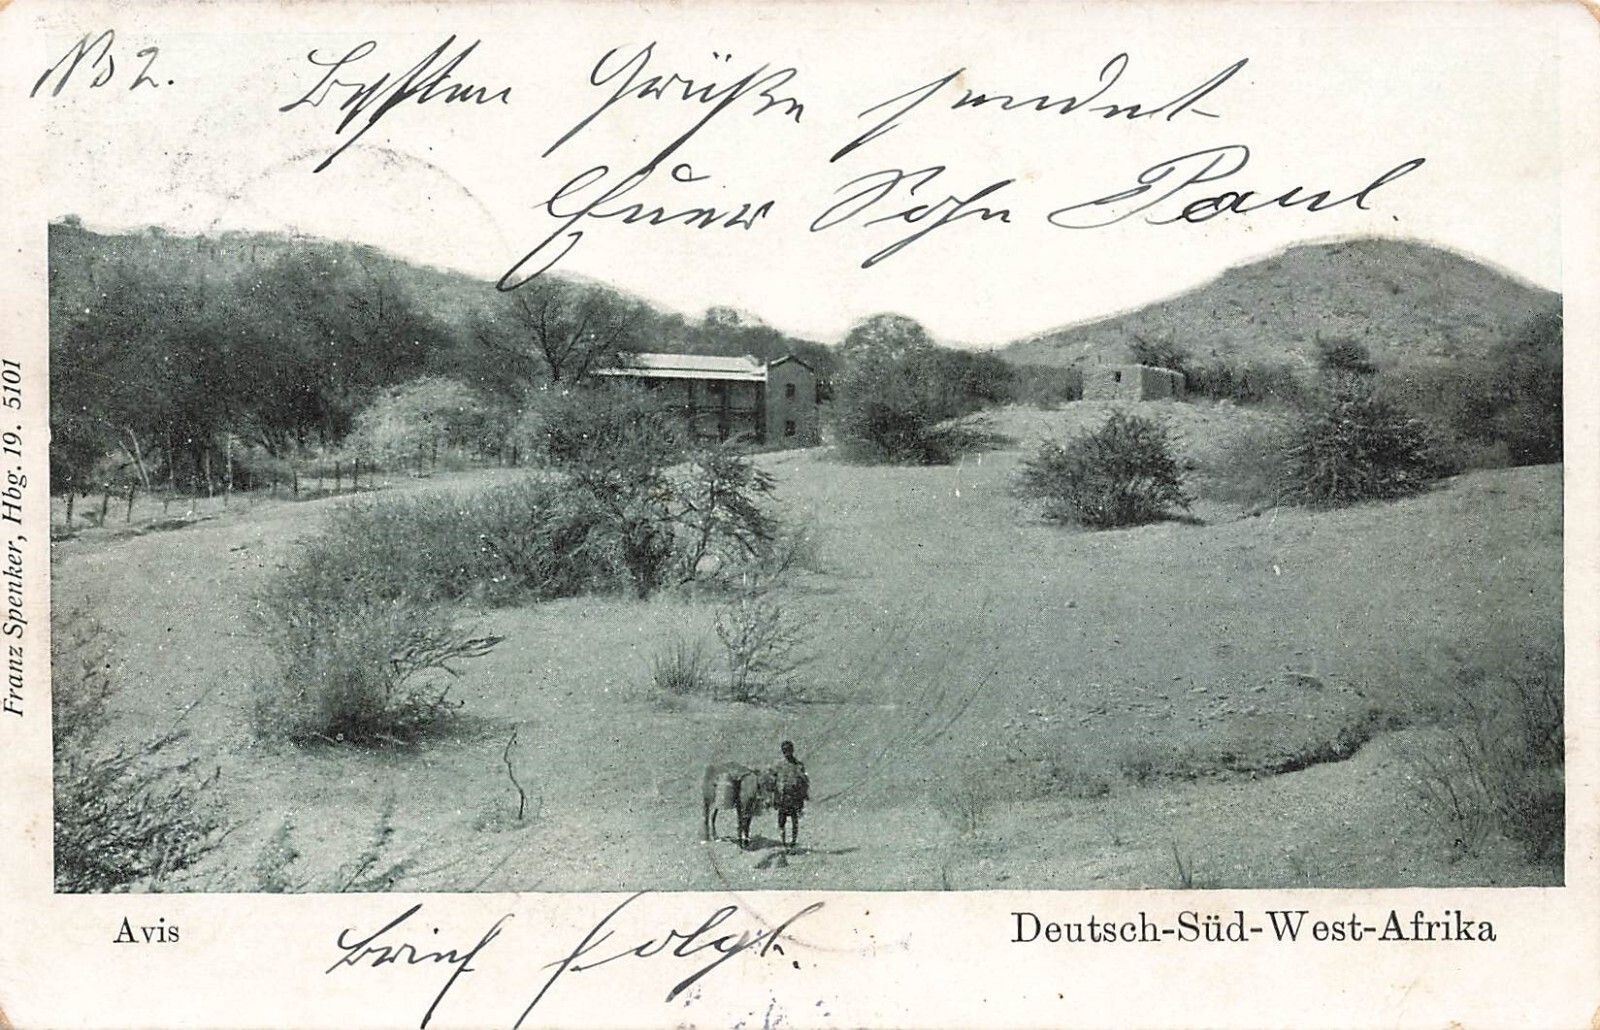 No 2.
Besten Grüße sendet
Euer Sohn Paul.
Franz Spenker, Hbg. 19. 5101
Avis
Brief folgt.
Deutsch-Süd-West-Afrika